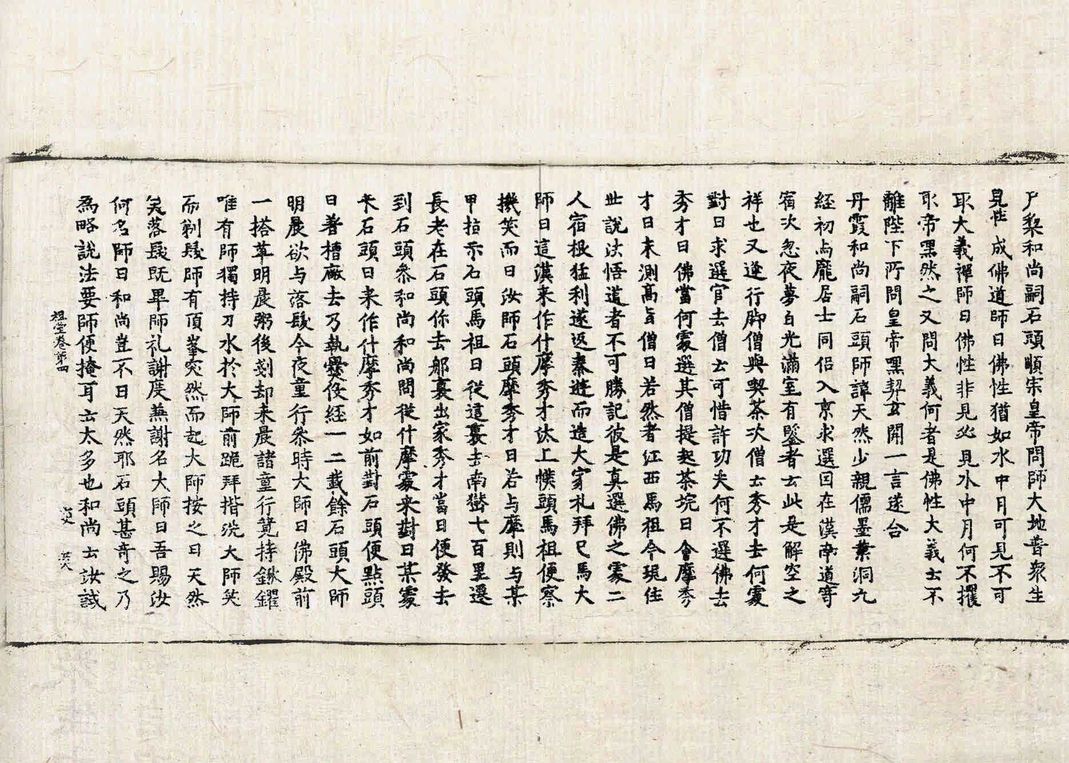 尸黎和尚嗣石頭順宗皇帝問師大地普衆生
見性成佛道師曰佛性猶如水中月可見不可
取大義禪師曰佛性非見必見水中月何不攫
取帝嘿然之又問大義何者是佛性大義云不
離陛下所問皇帝嘿契玄開一言遂合
丹霞和尚嗣石頭師諱天然少親儒墨業洞九
經初与龐居士同侣入京求選因在漢南道寄
宿次忽夜夢白光滿室有鑒者云此是解空之
祥也又逢行脚僧與喫茶次僧云秀才去何處
對曰求選官去僧云可惜許功夫何不選佛去
秀才曰佛當何處選其僧提起茶垸曰會摩秀
才曰未測高旨僧曰若然者江西馬祖今現住
世說法悟道者不可勝記彼是真選佛之處二
人宿根猛利遂返秦遊而造大寂礼拜已馬大
師曰這漢来作什摩秀才汰上幞頭馬祖便察
機笑而曰汝師石頭摩秀才曰若与摩則与某
甲指示石頭馬祖曰從這裏去南嶽七百里遷
長老在石頭你去那裏出家秀才當日便發去
到石頭叅和尚和尚問從什摩處来對曰某處
来石頭曰来作什摩秀才如前對石頭便點頭
曰著槽廠去乃執爨役經一二載餘石頭大師
明晨欲与落髮今夜童行叅時大師曰佛殿前
一搭草明晨粥後剗却来晨諸童行竟持鍬钁
唯有師獨持刀水於大師前跪拜揩洗大師笑
而剃髮師有頂峯突然而起大師按之曰天然
矣落髮既畢師礼謝度兼謝名大師曰吾賜汝
何名師曰和尚豈不曰天然耶石頭甚奇之乃
爲略說法要師便掩耳云太多也和尚云汝試
祖堂卷第四